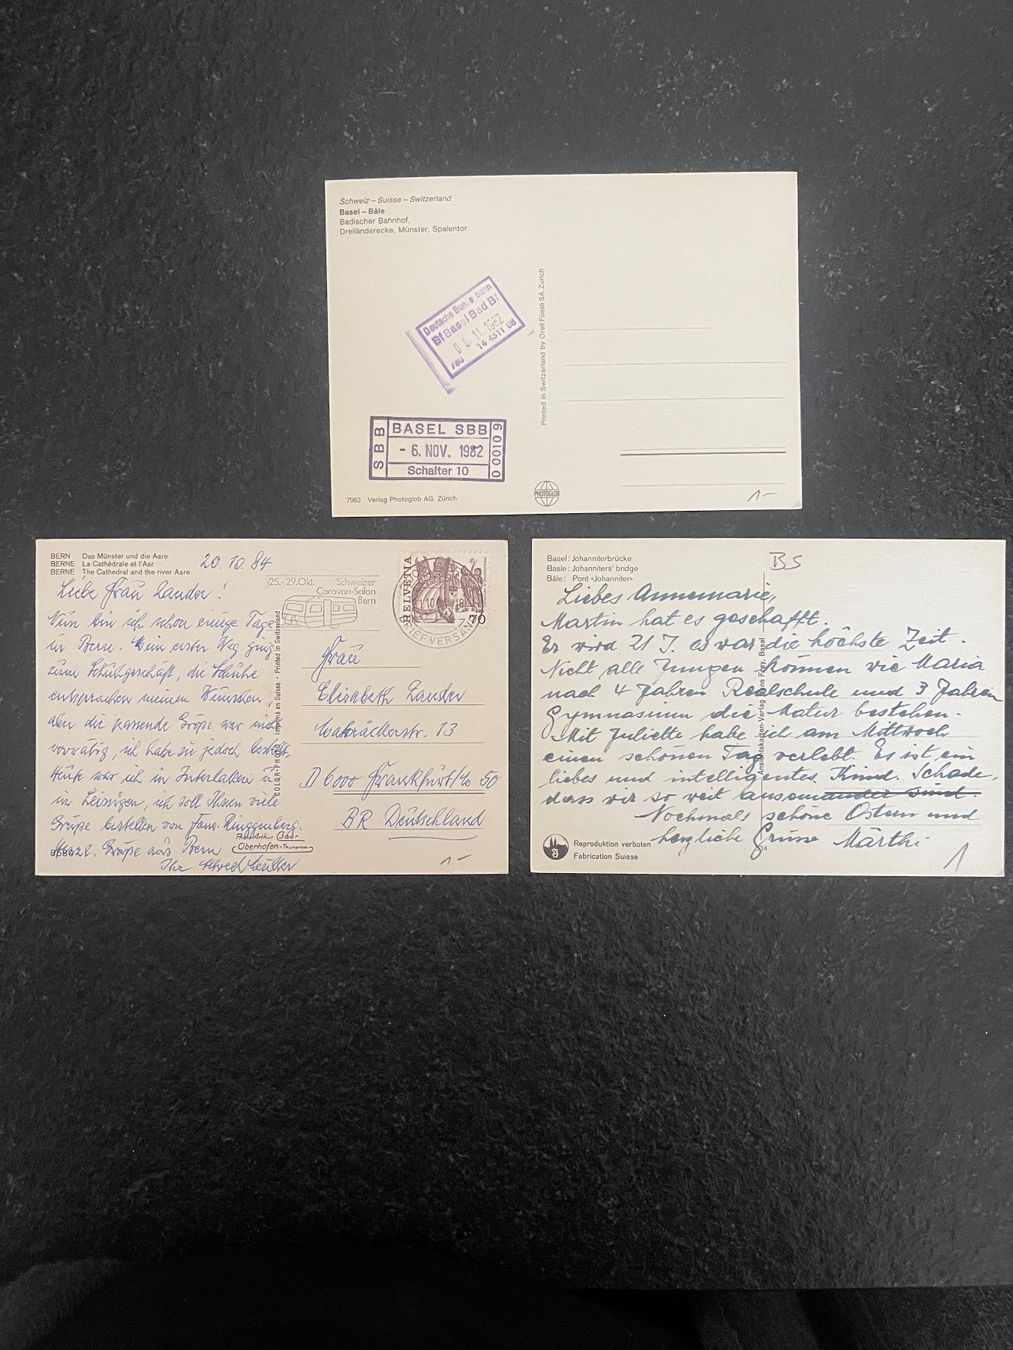 Schweiz – Suisse – Switzerland
Basel – Bâle
Badischer Bahnhof,
Dreiländerecke, Münster, Spalentor
Deutsche Bundesbahn
Bf Basel Bad Bf
11. 1982
14 4511 08
BASEL SBB
SBB
- 6. NOV. 1982
Schalter 10
0 0010 9
7963 Verlag Photoglob AG, Zürich
Printed in Switzerland by Orell Füssli SA, Zürich
PHOTOGLOB
1-
BERN Das Münster und die Aare
BERNE La Cathédrale et l'Aar
BERNE The Cathedral and the river Aare
20.10.84
Liebe Frau Lauder!
Nun bin ich schon einige Tage
in Bern. Mein erster Weg ging
zum Schuhgeschäft, die Schuhe
entsprachen meinen Wünschen,
aber die passende Größe war nicht
vorrätig, ich habe sie jedoch bestellt.
Heute war ich in Interlaken u.
in Leissigen, ich soll Ihnen viele
Grüße bestellen von Fam. Ringgenberg.
Herzl. Grüße aus Bern
Ihr
COLOR-PHOTO - Imprimé en Suisse - Printed in Switzerland
25.-29.Okt. Schweizer
Caravan-Salon
Bern
HELVETIA
70
BRIEFVERSAND
Frau
Elisabeth Lauder
13
D 6000 Frankfurt/M 50
BR Deutschland
Oberhofen-Thunersee
1-
Basel: Johanniterbrücke
Basle: Johanniters' bridge
Bâle: Pont «Johanniter»
BS
Liebes Annemarie,
Martin hat es geschafft.
Er wird 21 J. es war die höchste Zeit.
Nicht alle Jungen können wie Maria
nach 4 Jahren Realschule und 3 Jahren
Gymnasium die Matur bestehen.
Mit Juliette habe ich am Mittwoch
einen schönen Tag verlebt. Es ist ein
liebes und intelligentes Kind. Schade,
dass wir so weit auseinander sind.
Nochmals schöne Ostern und
herzliche Grüsse Märthi
Reproduktion verboten
Fabrication Suisse
1